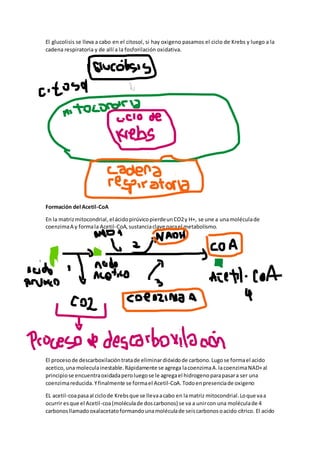 El glucolisis se lleva a cabo en el citosol, si hay oxigeno pasamos el ciclo de Krebs y luego a la
cadena respiratoria y de allí a la fosforilación oxidativa.
Glucólisis
citosol
mitocondria
ciclo de
Krebs
cadena
respiratoria
Formación del Acetil-CoA
En la matriz mitocondrial, el ácido pirúvico pierde un CO2 y H+, se une a una molécula de
coenzima A y forma la Acetil-CoA, sustancia clave para el metabolismo.
NAD+
NADH
1
2
3
COA
Acido
Acético
Acetil-CoA
4
CO2
COENZIMA A
Proceso de descarboxilación
El proceso de descarboxilación trata de eliminar dióxido de carbono. Lugo se forma el acido
acetico, una molecula inestable. Rápidamente se agrega la coenzima A. la coenzima NAD+ al
principio se encuentra oxidada pero luego se le agrega el hidrogeno para pasar a ser una
coenzima reducida. Y finalmente se forma el Acetil-CoA. Todo en presencia de oxigeno
EL acetil-coa pasa al ciclo de Krebs que se lleva a cabo en la matriz mitocondrial. Lo que va a
ocurrir es que el Acetil-coa (molécula de dos carbonos) se va a unir con una molécula de 4
carbonos llamado oxalacetato formando una molécula de seis carbonos o acido cítrico. El acido